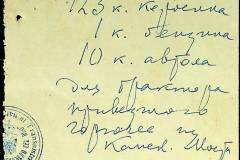 123 к. керосина
1 к. бензина
10 к. автола
для трактора
привезеного
горючее из
Камен. Моста